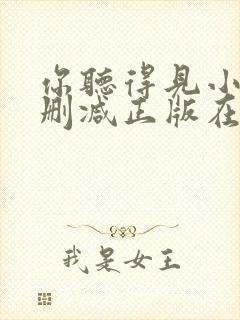 你聽得見小
刪減正版在
我是女王